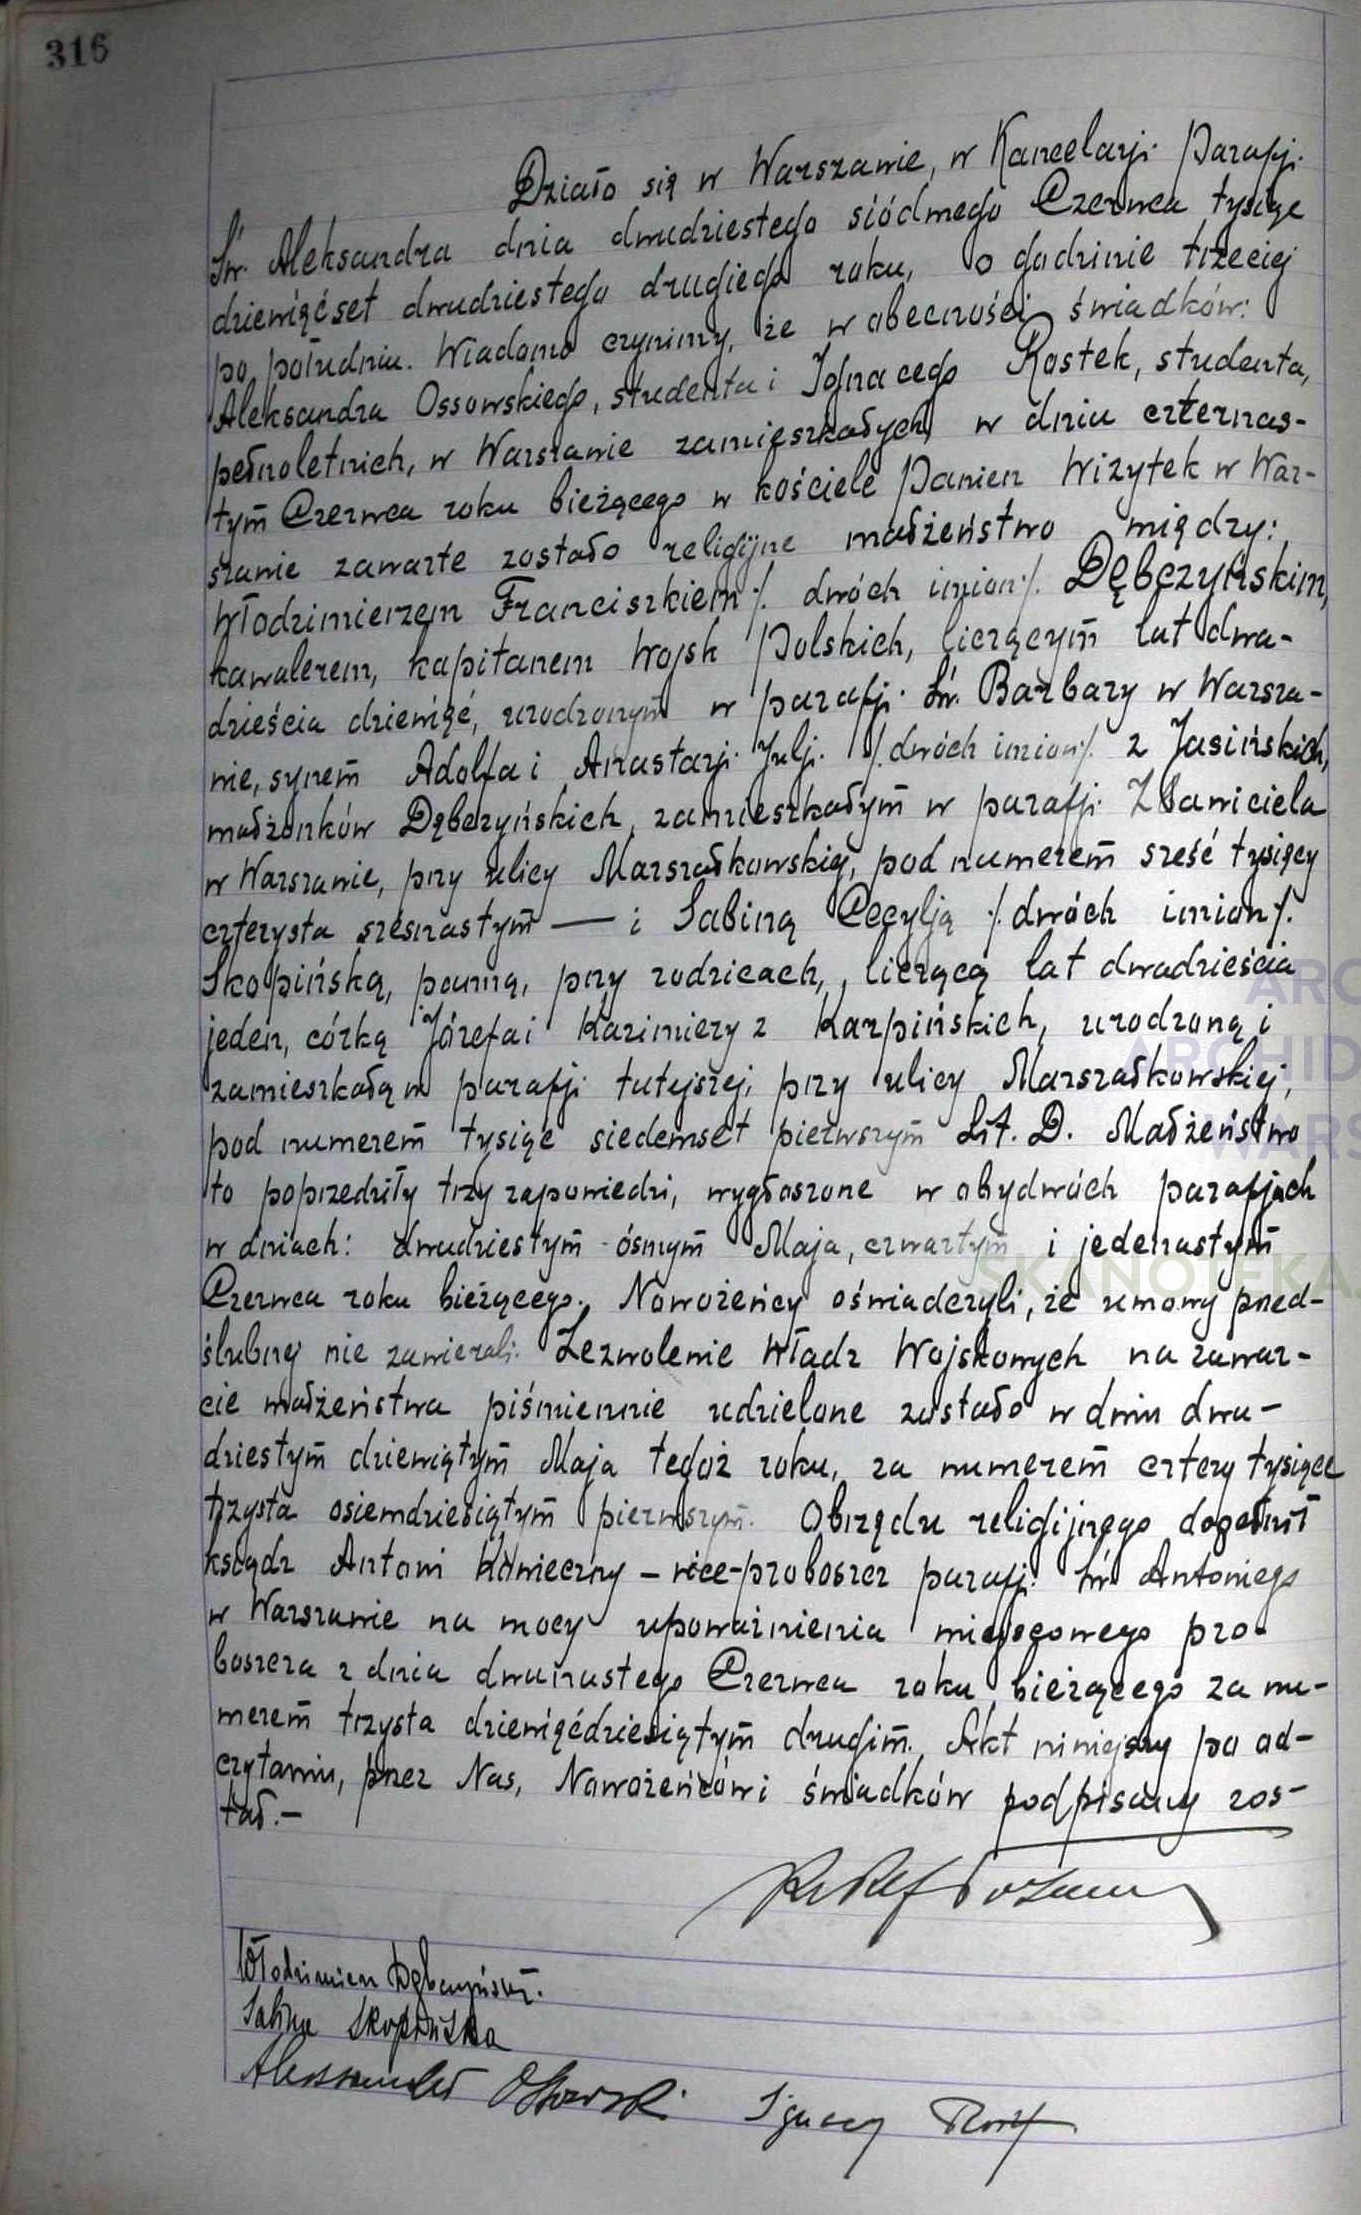 316
Działo się w Warszawie, w Kancelarji Parafji
Św. Aleksandra dnia dwudziestego siódmego Czerwca tysiąc
dziewięćset dwudziestego drugiego roku, o godzinie trzeciej
po południu. Wiadomo czynimy, że w obecności świadków:
Aleksandra Ossowskiego, studenta i Ignacego Rostek, studenta,
pełnoletnich, w Warszawie zamieszkałych, w dniu czternas-
tym Czerwca roku bieżącego w kościele Panien Wizytek w War-
szawie zawarte zostało religijne małżeństwo między:
Włodzimierzem Franciszkiem /. dwóch imion /. Dębczyńskim,
kawalerem, kapitanem Wojsk Polskich, liczącym lat dwa-
dzieścia dziewięć, urodzonym w parafji Św. Barbary w Warsza-
wie, synem Adolfa i Anastazji Julji /. dwóch imion /. z Jasińskich,
małżonków Dębczyńskich, zamieszkałym w parafji Zbawiciela
w Warszawie, przy ulicy Marszałkowskiej, pod numerem sześć tysięcy
czterysta szesnastym — i Sabiną Cecylją /. dwóch imion /.
Skopińską, panną, przy rodzicach, liczącą lat dwadzieścia
jeden, córką Józefa i Kazimiery z Karpińskich, urodzoną i
zamieszkałą w parafji tutejszej, przy ulicy Marszałkowskiej,
pod numerem tysiąc siedemset pierwszym Lit. D. Małżeństwo
to poprzedziły trzy zapowiedzi, wygłoszone w obydwóch parafjach
w dniach: dwudziestym ósmym Maja, czwartym i jedenastym
Czerwca roku bieżącego. Nowożeńcy oświadczyli, że umowy przed-
ślubnej nie zawierali. Zezwolenie Władz Wojskowych na zawar-
cie małżeństwa piśmiennie udzielone zostało w dniu dwu-
dziestym dziewiątym Maja tegoż roku, za numerem cztery tysiące
trzysta osiemdziesiątym pierwszym. Obrzędu religijnego dopełnił
ksiądz Antoni Konieczny – vice-proboszcz parafji Św. Antoniego
w Warszawie na mocy upoważnienia miejscowego pro-
boszcza z dnia dwunastego Czerwca roku bieżącego za nu-
merem trzysta dziewięćdziesiątym drugim. Akt niniejszy po od-
czytaniu, przez Nas, Nowożeńców i świadków podpisany zos-
tał.–
Włodzimierz Dębczyński.
Sabina Skopińska
Aleksander Ossowski Ignacy
ARCHID
WARS
SKANOTEKA